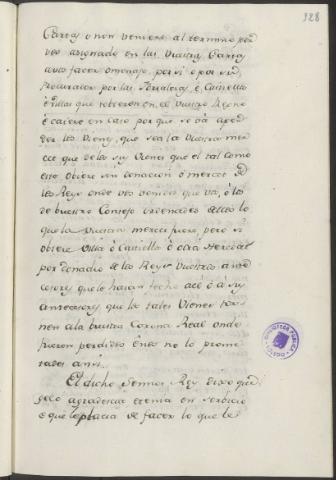 328
Cartas o non veniere al termino por
vos asignado en las vuestras Cartas
a vos facer omenaje, por si o por su
Procurador por las Fortalezas, è Castillos
è villas que tobieren en el vuestro Reyno
è caiere en caso por que se
der los vienes, que sea la vuestra mer-
ced que de los sus vienes que el tal como
este obiere sin donacion ò merced de
los Reys onde vos venides que vos, ò los
de vuestro Consejo ordenades de ello lo
que la vuestra merced fuere, pero si
obiere Villa ò Castiello ò otra eredat
por donadio de los Reyes vuestros ante
cesores que le haian fecho à él ò à sus
antecesores, que los tales vienes tor-
nen à la vuestra Corona Real onde
fueron perdidos è nos lo prome-
tades ansi.
El dicho Sennor Rey dixo que
gelo agradescia è tenia en servicio
è que le placia de facer lo que le